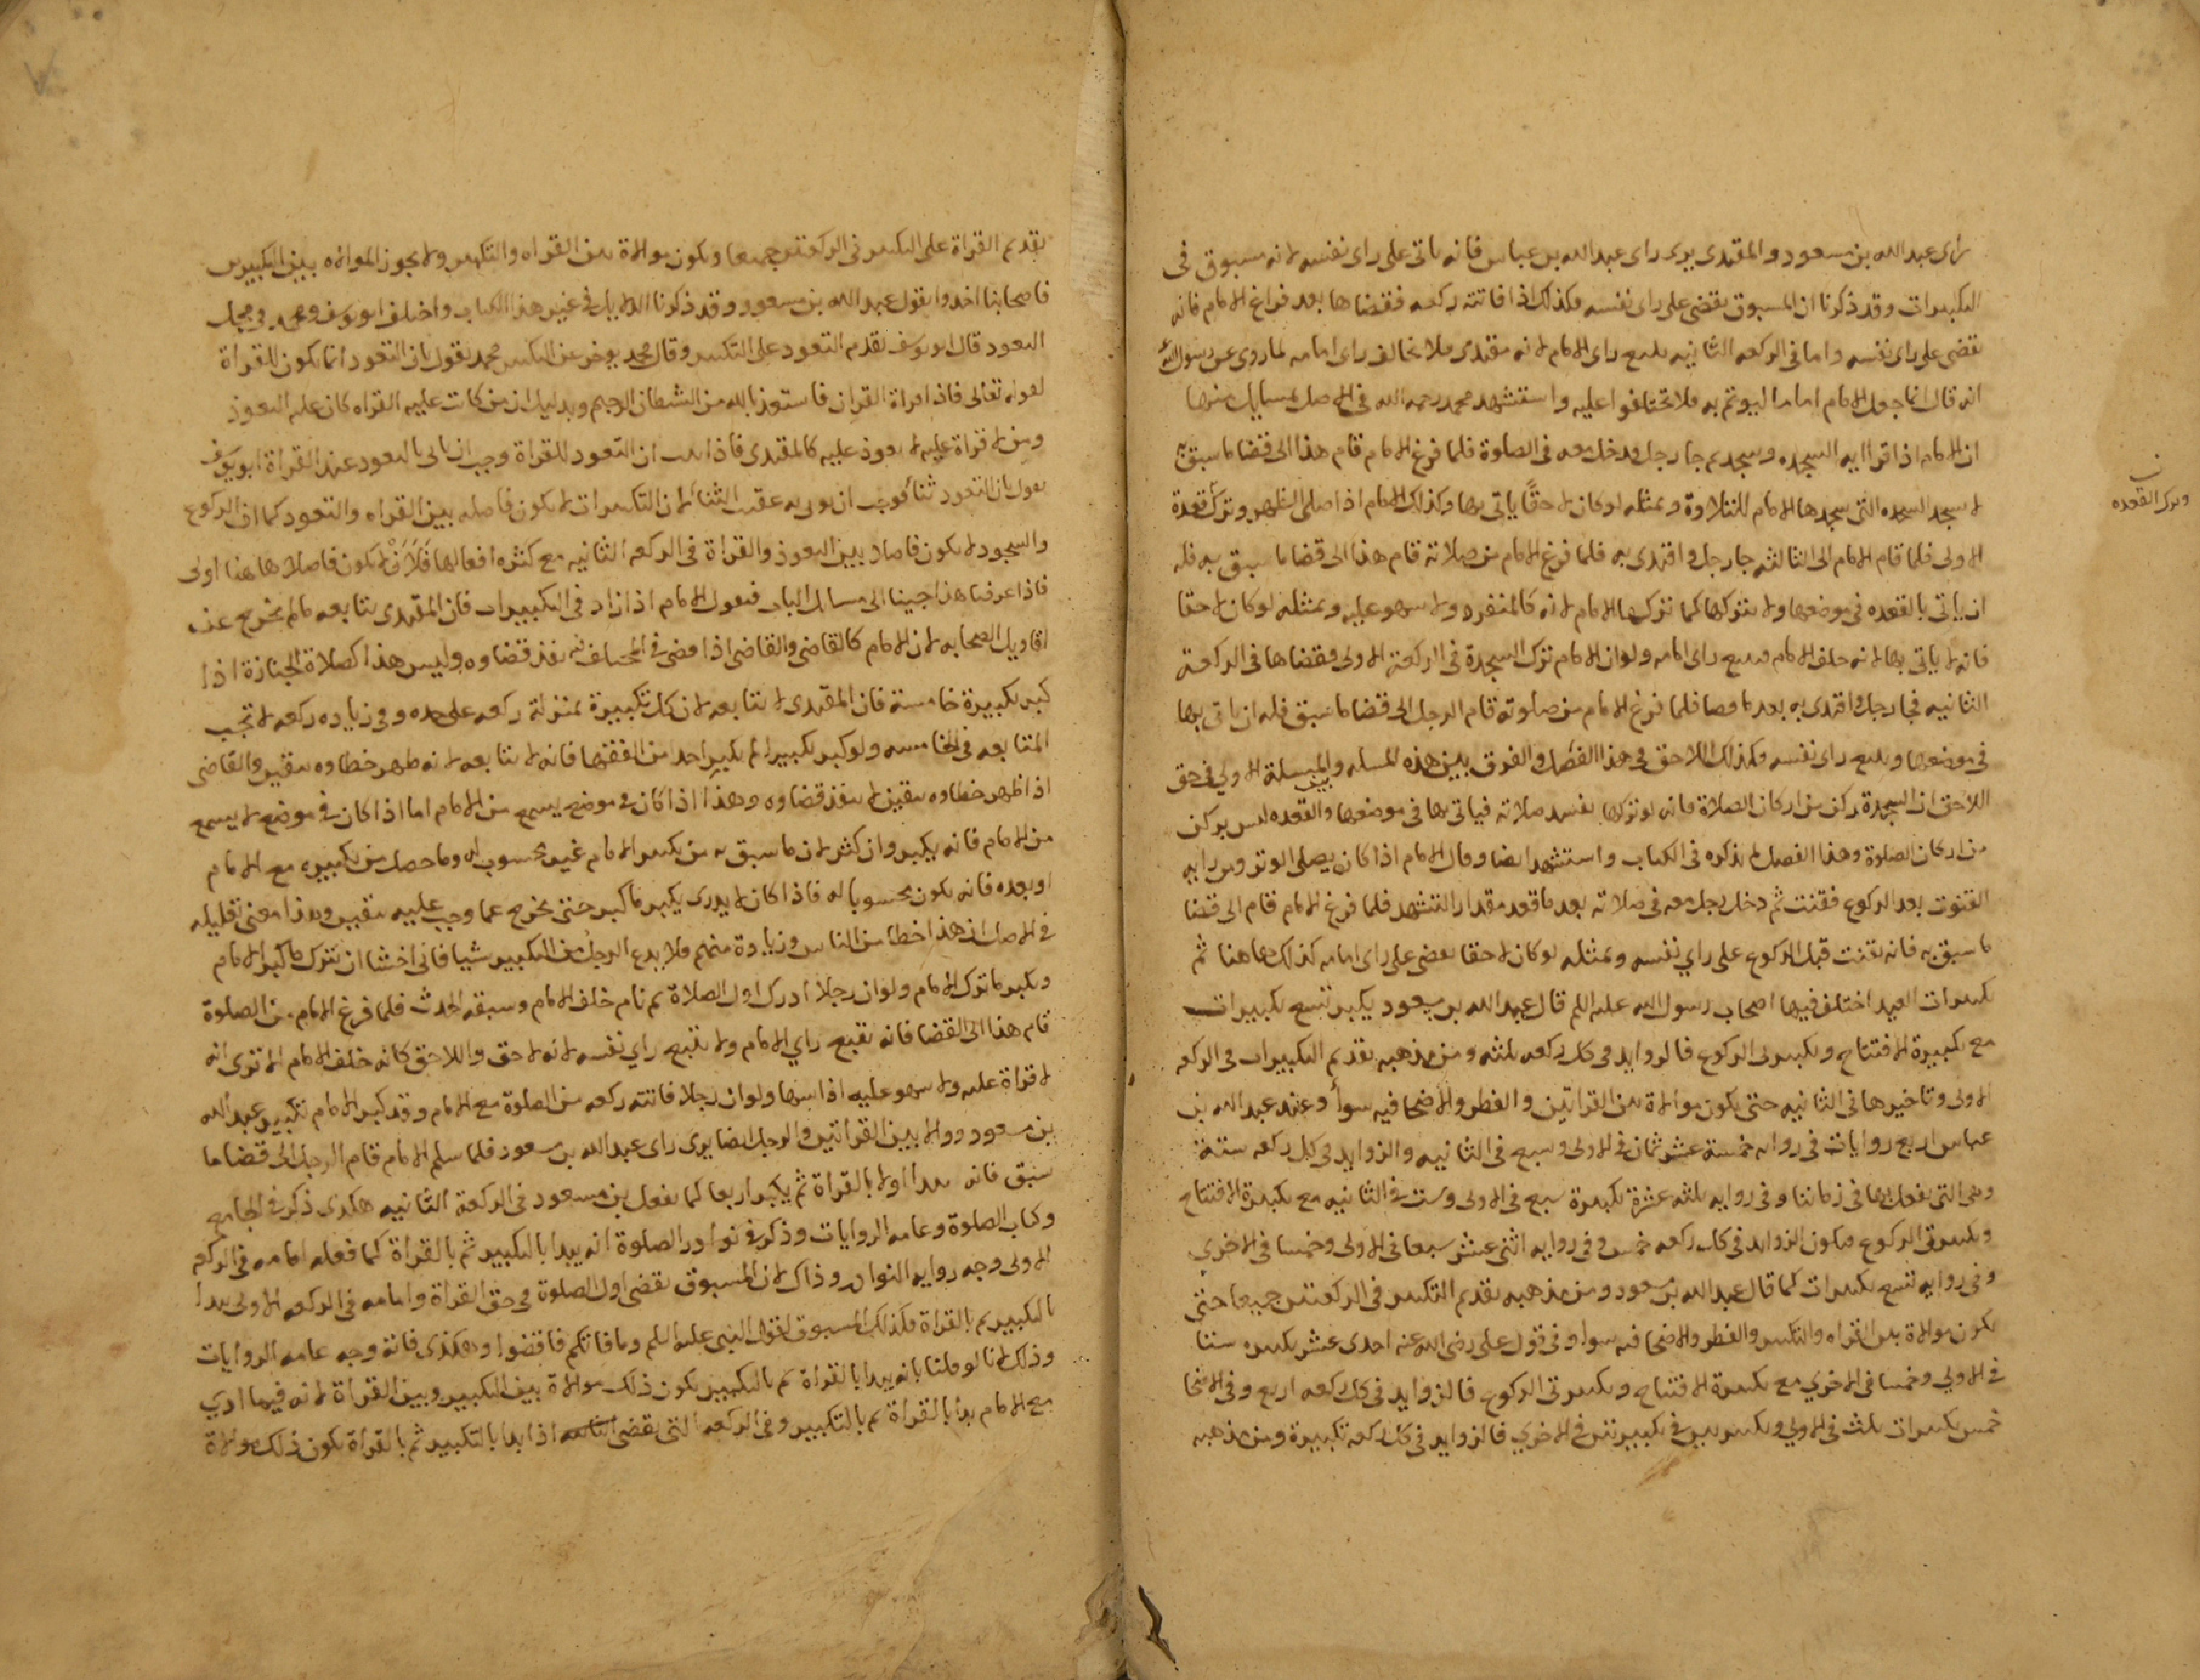 راى عبد الله بن مسعود والمقتدى يرى راى عبد الله بن عباس فانه ياتى على راى نفسه لانه مسبوق فى
التكبيرات وقد ذكرنا ان المسبوق يقضى على راى نفسه وكذلك اذا فاتته ركعه فقضاها بعد فراغ الامام فانه
يقضى على راى نفسه واما فى الركعه الثانيه يتبع راى الامام لانه مقتدى فلا يخالف راى امامه لما روى عن رسول الله
انه قال انما جعل الامام اماما ليوتم به فلا تختلفوا عليه واستشهد محمد رحمه الله فى الاصل بمسايل منها
ان الامام اذا قرا ايه السجده وسجد ثم جا رجل ودخل معه فى الصلوة فلما فرغ الامام قام هذا الى قضا ما سبق به
لا يسجد السجده التى سجدها الامام للتلاوة وبمثله لو كان لاحقًا ياتى بها وكذلك الامام اذا صلى الظهر وترك قعدة
وترك القعده
الاولى فلما قام الامام الى الثالثه جا رجل واقتدى به فلما فرغ الامام من صلاته قام هذا الى قضا ما سبق به فله
ان ياتى بالقعده فى موضعها ولا يتركها كما تركها الامام لانه كالمنفرد ولا سهو عليه وبمثله لو كان لاحقا
فانه لا ياتى بها لانه خلف الامام فيتبع راى امامه ولو ان الامام ترك السجدة فى الركعة الاولى فقضاها فى الركعة
الثانيه فجا رجل واقتدى به بعد ما قضا فلما فرغ الامام من صلوته قام الرجل الى قضا ما سبق فله ان ياتى بها
فى موضعها ويتبع راى نفسه وكذلك اللاحق فى هذا الفصل والفرق بين هذه المسله وبين المسلة الاولى فى حق
اللاحق ان السجدة ركن من اركان الصلاة فانه لو تركها تفسد صلاته فياتى بها فى موضعها والقعده ليس بركن
من اركان الصلوة وهذا الفصل لم يذكره فى الكتاب واستشهد ايضا وقال الامام اذا كان يصلى الوتر ومن رايه
القنوت بعد الركوع فقنت ثم دخل رجل معه فى صلاته بعد ما قعد مقدار التشهد فلما فرغ الامام قام الى قضا
ما سبق به فانه يقنت قبل الركوع على راي نفسه وبمثله لو كان لاحقا يقضى على راى امامه كذلك هاهنا ثم
تكبيرات العيد اختلف فيها اصحاب رسول الله عليه السلم قال عبد الله بن مسعود يكبر تسع تكبيرات
مع تكبيرة الافتتاح وتكبيرتى الركوع فالزوايد فى كل ركعه ثلثه ومن مذهبه تقديم التكبيرات فى الركعه
الاولى وتاخيرها فى الثانيه حتى يكون موالاة بين القراتين والفطر والاضحا فيه سوأ وعند عبد الله بن
عباس اربع روايات فى روايه خمسة عشر ثمان فى الاولى وسبع فى الثانيه والزوايد فى كل ركعه ستة
وهى التى يفعل بها فى زماننا وفى روايه ثلثه عشرة تكبيرة سبع فى الاولى وست فى الثانيه مع تكبيرة الافتتاح
وتكبيرتى الركوع فيكون الزوايد فى كل ركعه خمس وفى روايه اثنى عشر سبعا فى الاولى وخمسا فى الاخرى
وفى روايه تسع تكبيرات كما قال عبد الله بن مسعود ومن مذهبه تقديم التكبير فى الركعتين جميعا حتى
يكون موالاة بين القراه والتكبير والفطر والاضحا فيه سوا وفى قول على رضى الله عنه احدى عشر تكبيره ستا
فى الاولى وخمسا فى الاخرى مع تكبيرة الافتتاح وتكبيرتى الركوع فالزوايد فى كل ركعه اربع وفى الاضحا
خمس تكبيرات ثلث فى الاولى وتكبيرتين فى الاخرى فالزوايد فى كل ركعه تكبيرة ومن مذهبه
تقديم القراة على التكبير فى الركعتين جميعا ويكون موالاة بين القراه والتكبير ولا يجوز الموالاه بين التكبيرين
فاصحابنا اخذوا بقول عبد الله بن مسعود وقد ذكرنا الدلايل فى غير هذا الكتاب واختلف ابو يوسف ومحمد فى محل
التعود قال ابو يوسف يقدم التعود على التكبير وقال محمد يوخر عن التكبير محمد يقول بان التعود انما يكون للقراة
لقوله تعالى فاذا قرات القران فاستعذ بالله من الشطان الرجيم وبدليل ان من كانت عليه القراه كان عليه التعوذ
ومن لا قراة عليه لا تعوذ عليه كالمقتدى فاذا ثبت ان التعود للقراة وجب ان ياتى بالتعود عند القراة ابو يوسف
يقول بان التعود ثنا فوجب ان يوتى به عقب الثنا لان التكبيرات لا يكون فاصله بين القراه والتعود كما ان الركوع
والسجود لا يكون فاصلا بين التعوذ والقراة فى الركعه الثانيه مع كثره افعالها فَلَأَنْ لا يكون فاصلا هاهنا اولى
فاذا عرفنا هذا جينا الى مسايل الباب فنقول الامام اذا زاد فى التكبيرات فان المقتدى يتابعه ما لم يخرج عن
اقاويل الصحابه لان الامام كالقاضى والقاضى اذا قضى فى المختلف فيه نفذ قضاوه وليس هذا كصلاة الجنازة اذا
كبر تكبيرة خامسة فان المقتدى لا يتابعه لان كل تكبيرة بمنزلة ركعه على حده وفى زياده ركعه لا تجب
المتابعه فى الخامسه ولو كبر تكبيرا لم يكبر احد من الفقها فانه لا يتابعه لانه ظهر خطاوه بيقين والقاضى
اذا ظهر خطاوه بيقين لا ينفذ قضاوه وهذا اذا كان فى موضع يسمع من الامام اما اذا كان فى موضع لا يسمع
من الامام فانه يكبر وان كثر لان ما سبق به من تكبير الامام غير محسوب له وما حصل من تكبيره مع الامام
او بعده فانه يكون محسوبا له فاذا كان لا يدرى يكبر ما كبر حتى يخرج عما وجب عليه بيقين وهذا معنى تعليله
فى الاصل ان هذا خطا من الناس وزيادة منهم فلا يدع الرجل من التكبير شيا فانى اخشا ان يترك ما كبر الامام
ويكبر ما ترك الامام ولو ان رجلا ادرك اول الصلاة ثم نام خلف الامام وسبقه الحدث فلما فرغ الامام من الصلوة
قام هذا الى القضا فانه يتبع راي الامام ولا يتبع راي نفسه لانه لاحق واللاحق كانه خلف الامام الا ترى انه
لا قراة عليه ولا سهو عليه اذا سها ولو ان رجلا فاتته ركعه من الصلوة مع الامام وقد كبر الامام تكبير عبد الله
بن مسعود ووالا بين القراتين والرجل ايضا يرى راى عبد الله بن مسعود فلما سلم الامام قام الرجل الى قضا ما
سبق فانه يبدا اولا بالقراة ثم يكبر اربعا كما يفعل بن مسعود فى الركعة الثانيه هكذى ذكر فى الجامع
وكتاب الصلوة وعامه الروايات وذكر فى نوادر الصلوة انه يبدا بالتكبير ثم بالقراة كما فعله امامه فى الركعه
الاولى وجه روايه النوادر وذاك لان المسبوق يقضى اول الصلوة فى حق القراة وامامه فى الركعه الاولى بدا
بالتكبير ثم بالقراة فكذلك المسبوق لقول النبى عليه السلم وما فاتكم فاقضوا وهكذى فاته وجه عامه الروايات
وذلك لانا لو قلنا بانه يبدا بالقراة ثم بالتكبير يكون ذلك موالاة بين التكبير وبين القراة لانه فيما ادي
مع الامام بدأ بالقراة ثم بالتكبير وفى الركعه التى يقضى اذا بدا بالتكبير ثم بالقراة يكون ذلك موالاة